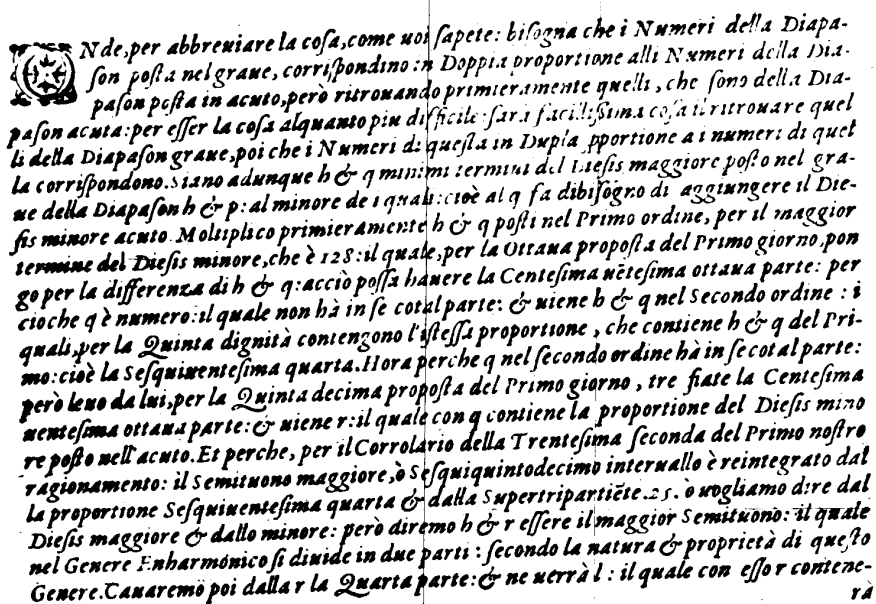 ONde, per abbreuiare la cosa, come uoi sapete: bisogna che i Numeri della Diapa-
son posta nel graue, corrispondino in Doppia proportione alli Numeri della Dia-
pason posta in acuto, però ritrouando primieramente quelli, che sono della Dia-
pason acuta: per esser la cosa alquanto piu difficile: sarà facilissima cosa il ritrouare quel
li della Diapason graue, poi che i Numeri di questa in Dupla pportione a i numeri di quel
la corrispondono. Siano adunque h & q minimi termini del Diesis maggiore posto nel gra-
ue della Diapason h & p: al minore de i quali: cioè al q fa dibisogno di aggiungere il Die-
sis minore acuto. Moltiplico primieramente h & q posti nel Primo ordine, per il maggior
termine del Diesis minore, che è 128: il quale, per la Ottaua proposta del Primo giorno, pon
go per la differenza di h & q: acciò possa hauere la Centesima uētesima ottaua parte: per
cioche q è numero: il quale non hà in se cotal parte: & uiene h & q nel Secondo ordine: i
quali, per la Quinta dignità contengono l'istessa proportione, che contiene h & q del Pri-
mo: cioè la Sesquiuentesima quarta. Hora perche q nel secondo ordine hà in se cotal parte:
però leuo da lui, per la Quinta decima proposta del Primo giorno, tre fiate la Centesima
uentesima ottaua parte: & uiene r: il quale con q contiene la proportione del Diesis mino
re posto nell'acuto. Et perche, per il Corrolario della Trentesima seconda del Primo nostro
ragionamento: il Semituono maggiore, ò Sesquiquintodecimo interuallo è reintegrato dal
la proportione Sesquiuentesima quarta & dalla Supertripartiēte.25. ò uogliamo dire dal
Diesis maggiore & dallo minore: però diremo h & r essere il maggior Semituono: il quale
nel Genere Enharmonico si diuide in due parti: secondo la natura & proprietà di questo
Genere. Cauaremo poi dalla r la Quarta parte: & ne uerrà l: il quale con esso r contene-
rà